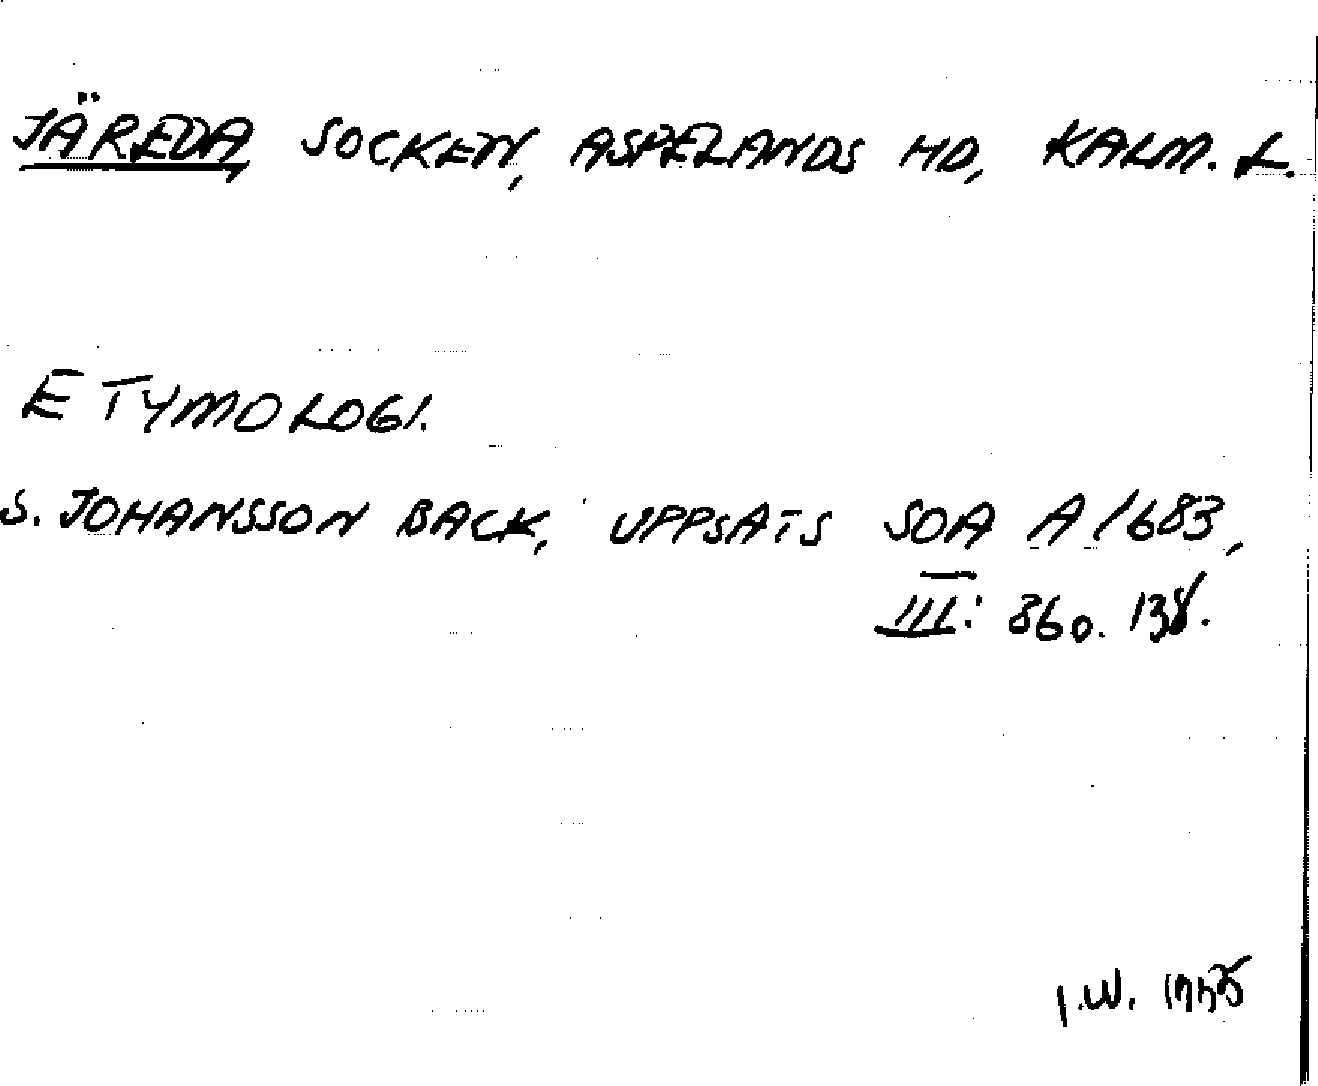 JÄREDA, SOCKEN, ASPELANDS HD, KALM. L.
ETYMOLOGI.
S. JOHANSSON BACK, UPPSATS SOA A1683,
III: 860. 138.
I.W.